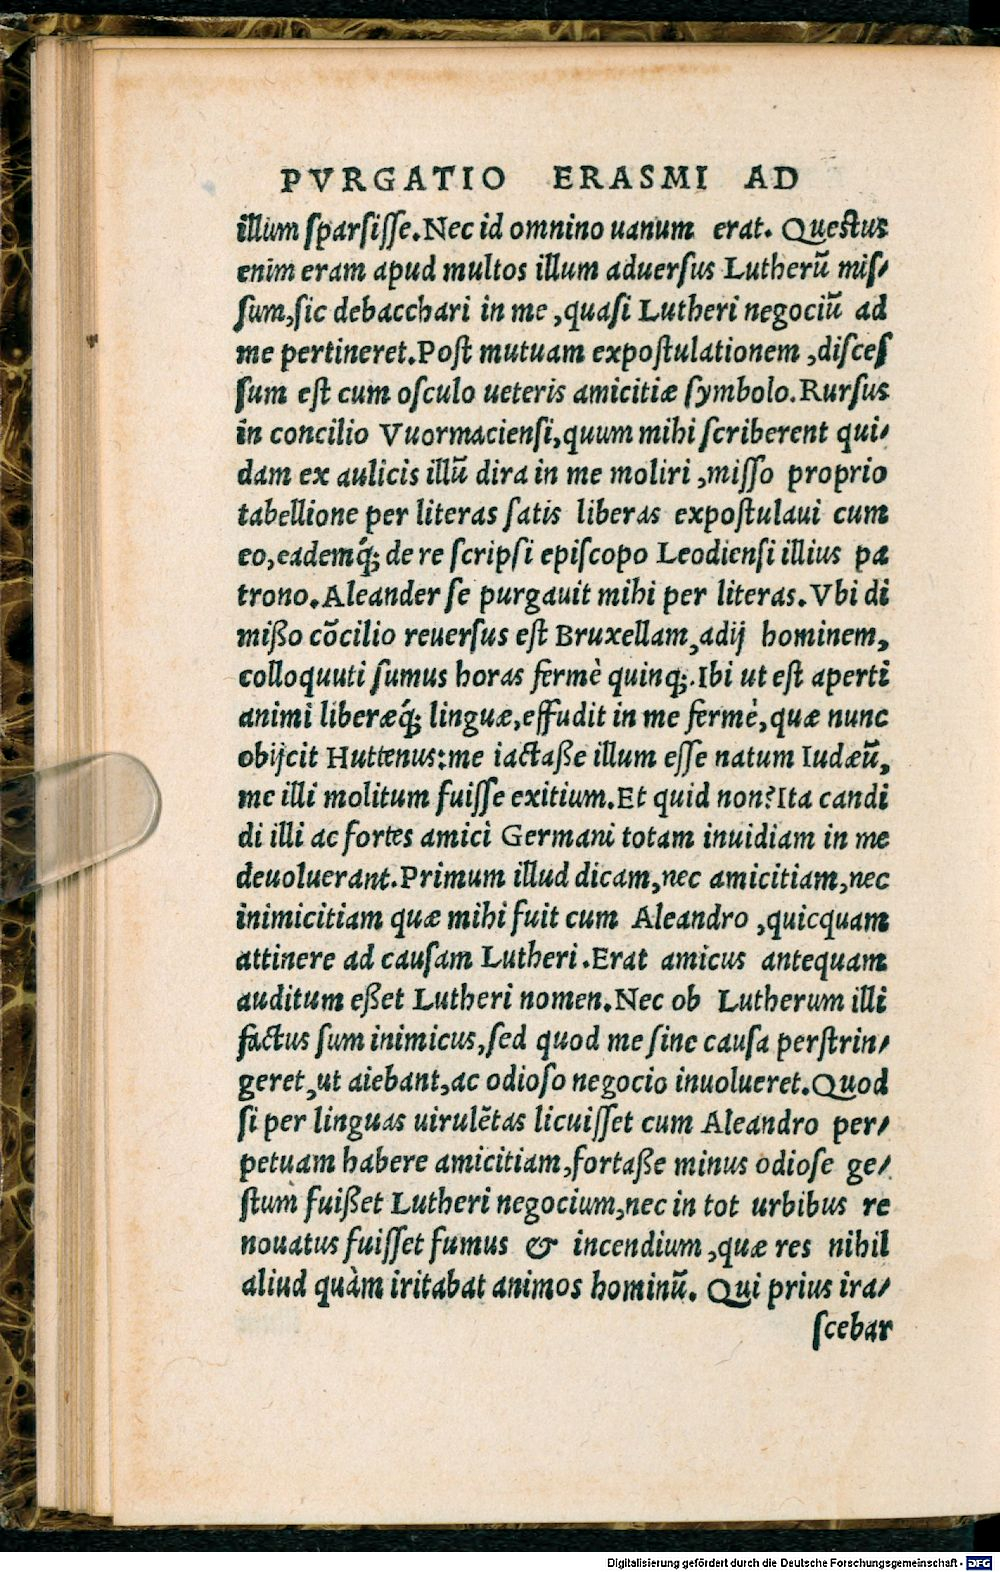 PVRGATIO ERASMI AD
illum sparsisse. Nec id omnino uanum erat. Questus
enim eram apud multos illum aduersus Lutherū mis/
sum, sic debacchari in me, quasi Lutheri negociū ad
me pertineret. Post mutuam expostulationem, disces
sum est cum osculo ueteris amicitiæ symbolo. Rursus
in concilio Vuormaciensi, quum mihi scriberent qui/
dam ex aulicis illū dira in me moliri, misso proprio
tabellione per literas satis liberas expostulaui cum
eo, eademq́; de re scripsi episcopo Leodiensi illius pa
trono. Aleander se purgauit mihi per literas. Vbi di
mißo cōcilio reuersus est Bruxellam, adij hominem,
colloquuti sumus horas fermè quinq;. Ibi ut est aperti
animi liberæq́; linguæ, effudit in me fermè, quæ nunc
obijcit Huttenus: me iactaße illum esse natum Iudæū,
me illi molitum fuisse exitium. Et quid non? Ita candi
di illi ac fortes amici Germani totam inuidiam in me
deuoluerant. Primum illud dicam, nec amicitiam, nec
inimicitiam quæ mihi fuit cum Aleandro, quicquam
attinere ad causam Lutheri. Erat amicus antequam
auditum eßet Lutheri nomen. Nec ob Lutherum illi
factus sum inimicus, sed quod me sine causa perstrin/
geret, ut aiebant, ac odioso negocio inuolueret. Quod
si per linguas uirulētas licuisset cum Aleandro per/
petuam habere amicitiam, fortaße minus odiose ge/
stum fuißet Lutheri negocium, nec in tot urbibus re
nouatus fuisset fumus & incendium, quæ res nihil
aliud quàm iritabat animos hominū. Qui prius ira/
scebar
Digitalisierung gefördert durch die Deutsche Forschungsgemeinschaft - DFG